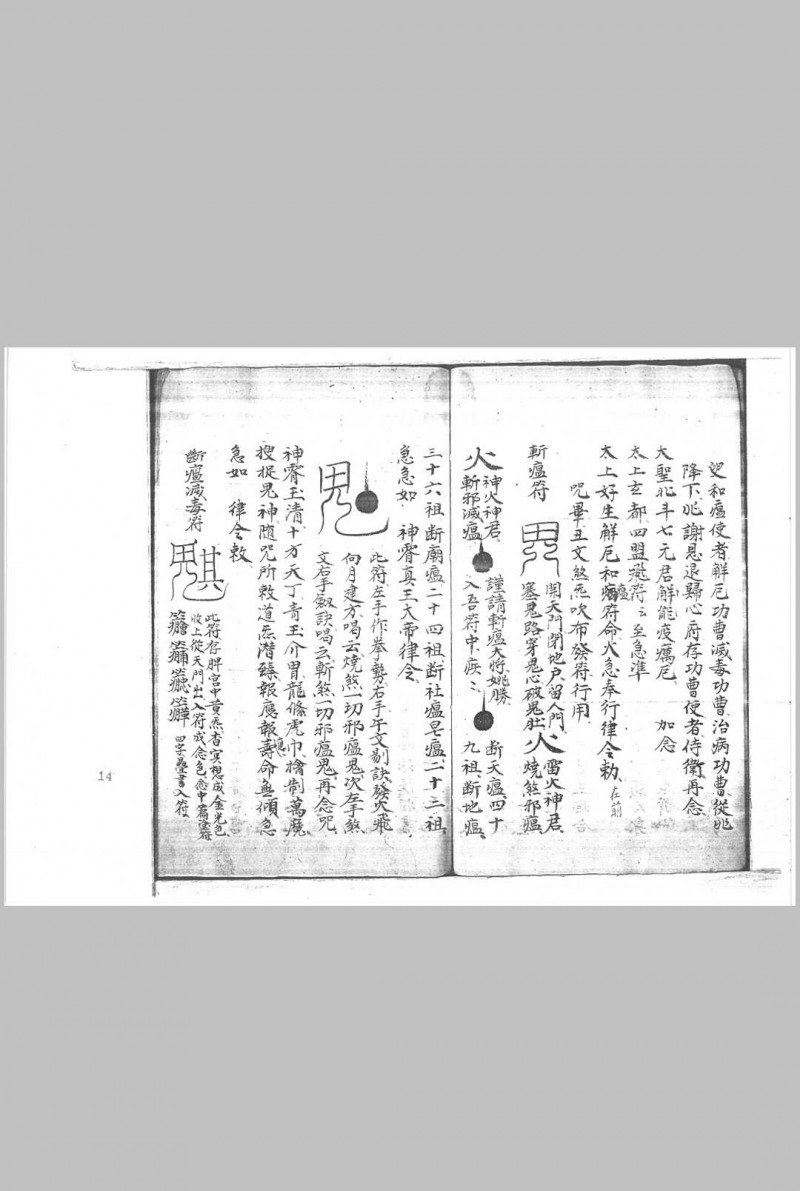 和瘟使者解厄功曹滅毒功曹治病功曹從兆
降下兆謝恩退歸心府存功曹使者侍衛再念
大聖北斗七元君解能疫癘厄 加念
太上玄都四盟
符云至急準
太上好生解厄和瘟符命火急奉行律令勅在前
咒畢丑文煞炁吹布發符行用
斬瘟符
開天門閉地戶留人門
塞鬼路穿鬼心破鬼肚
火
雷火神君
燒煞邪瘟
火
神火神君
斬邪滅瘟
謹請斬瘟大將姚勝
入吾符中疾〻
断天瘟四十
九祖断地瘟
三十六祖断廟瘟二十四祖断社瘟皂瘟二十三祖
急急如 神霄真王大帝律令
此符左手作拳勢右手午文剔訣發火飛
向月建方喝云燒煞一切邪瘟鬼次左手煞
文右手劔訣喝云斬煞一切邪瘟鬼再念咒
神霄玉清十方天丁青玉介胄龍絛虎巾檜制萬魔
搜捉鬼神随咒所敕道炁潛臻報應報壽命無傾急
急如 律令敕
断瘟滅毒符
此符存脾宮中黄炁杳冥想成金光色
收上從天門出入符成念色念中
四字疊書入符
14